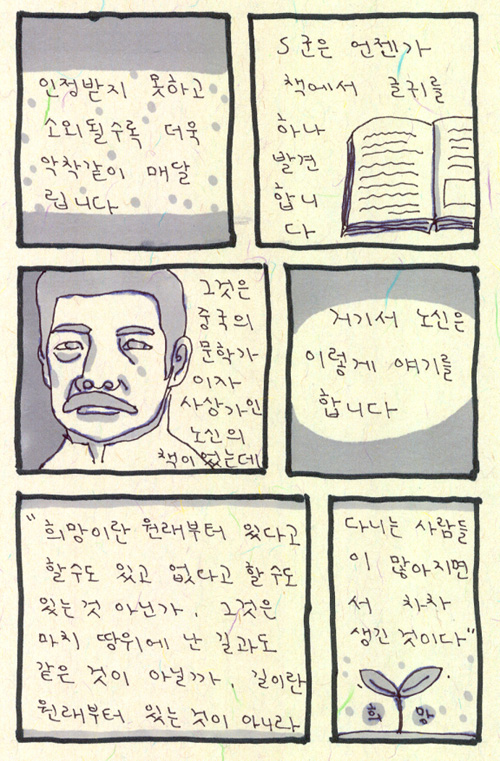 인정받지 못하고
소외될수록 더욱
악착같이 매달
립니다
S군은 언젠가
책에서 글귀를
하나
발견
합니
다
그것은
중국의
문학가
이자
사상가인
노신의
책이었는데
거기서 노신은
이렇게 얘기를
합니다
"희망이란 원래부터 있다고
할수도 있고 없다고 할수도
있는것 아닌가. 그것은
마치 땅위에 난 길과도
같은 것이 아닐까. 길이란
원래부터 있는것이 아니라
다니는 사람들
이 많아지면
서 차차
생긴 것이다".
희 망